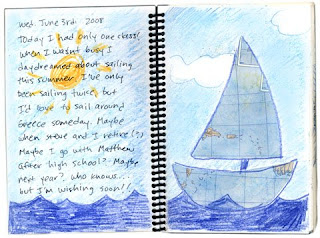 Wed. June 3rd 2008
Today I had only one class!
When I wasnt busy I
daydreamed about sailing
this summer. I've only
been sailing twice, but
I'd love to sail around
Greece someday. Maybe
when Steve and I retire (?)
Maybe I go with Matthew
after high school? Maybe
next year? Who knows...
but I'm wishing soon!!